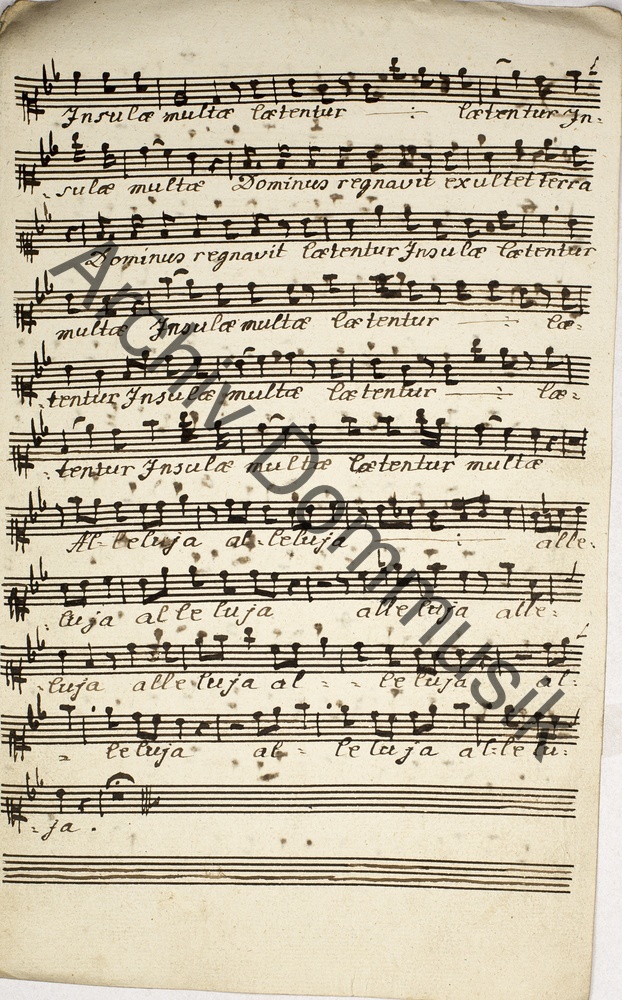 Insulæ multæ lætentur lætentur In-
sulæ multæ Dominus regnavit exultet terra
Dominus regnavit lætentur Insulæ lætentur
multæ Insulæ multæ lætentur læ-
tentur Insulæ multæ lætentur læ-
tentur Insulæ multæ lætentur multæ
Al-leluja al-leluja alle-
luja alleluja alleluja alle-
luja alleluja al - - leluja al-
- leluja al - leluja al-lelu-
- ja.
Archiv Dommusik